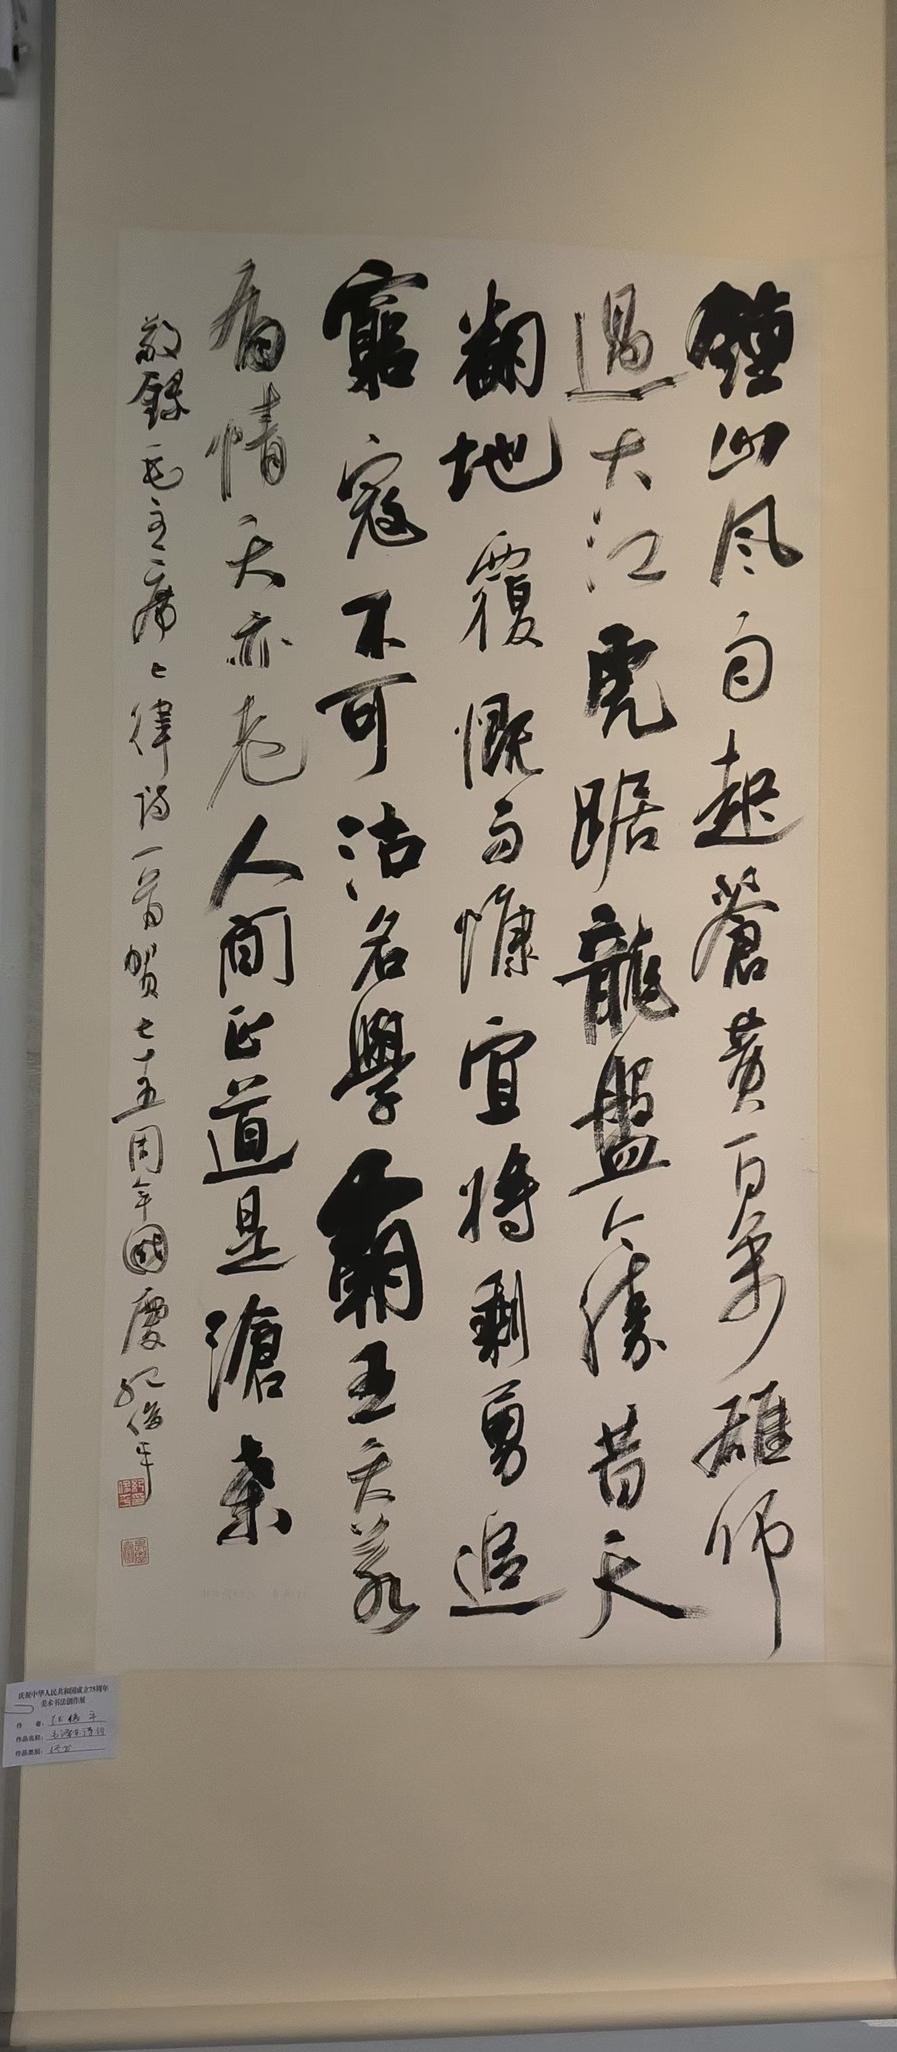 鍾山风自起蒼黄百万雄师
過大江虎踞龍盤今勝昔天
翻地覆慨而慷宜将剩勇追
窮寇不可沽名學霸王天若
有情天亦老人間正道是滄桑
敬錄毛主席七律詩一首賀七十五周年國慶 紀俊平
庆祝中华人民共和国成立75周年
美术书法创作展
作 者：纪俊平
作品名称：毛泽东诗词
作品类别：书法